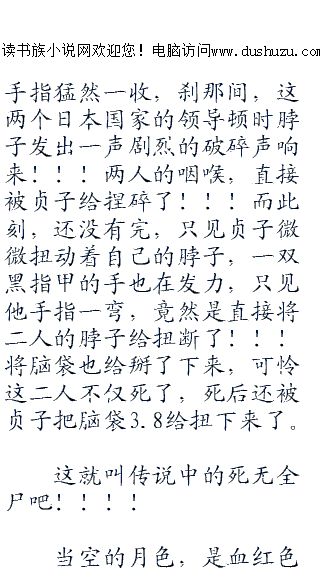 读书族小说网欢迎您！电脑访问www.dushuzu.com
手指猛然一收，刹那间，这
两个日本国家的领导顿时脖
子发出一声剧烈的破碎声响
来！！！两人的咽喉，直接
被贞子给捏碎了！！！而此
刻，还没有完，只见贞子微
微扭动着自己的脖子，一双
黑指甲的手也在发力，只见
他手指一弯，竟然是直接将
二人的脖子给扭断了！！！
将脑袋也给掰了下来，可怜
这二人不仅死了，死后还被
贞子把脑袋3.8给扭下来了。
这就叫传说中的死无全
尸吧！！！！
当空的月色，是血红色